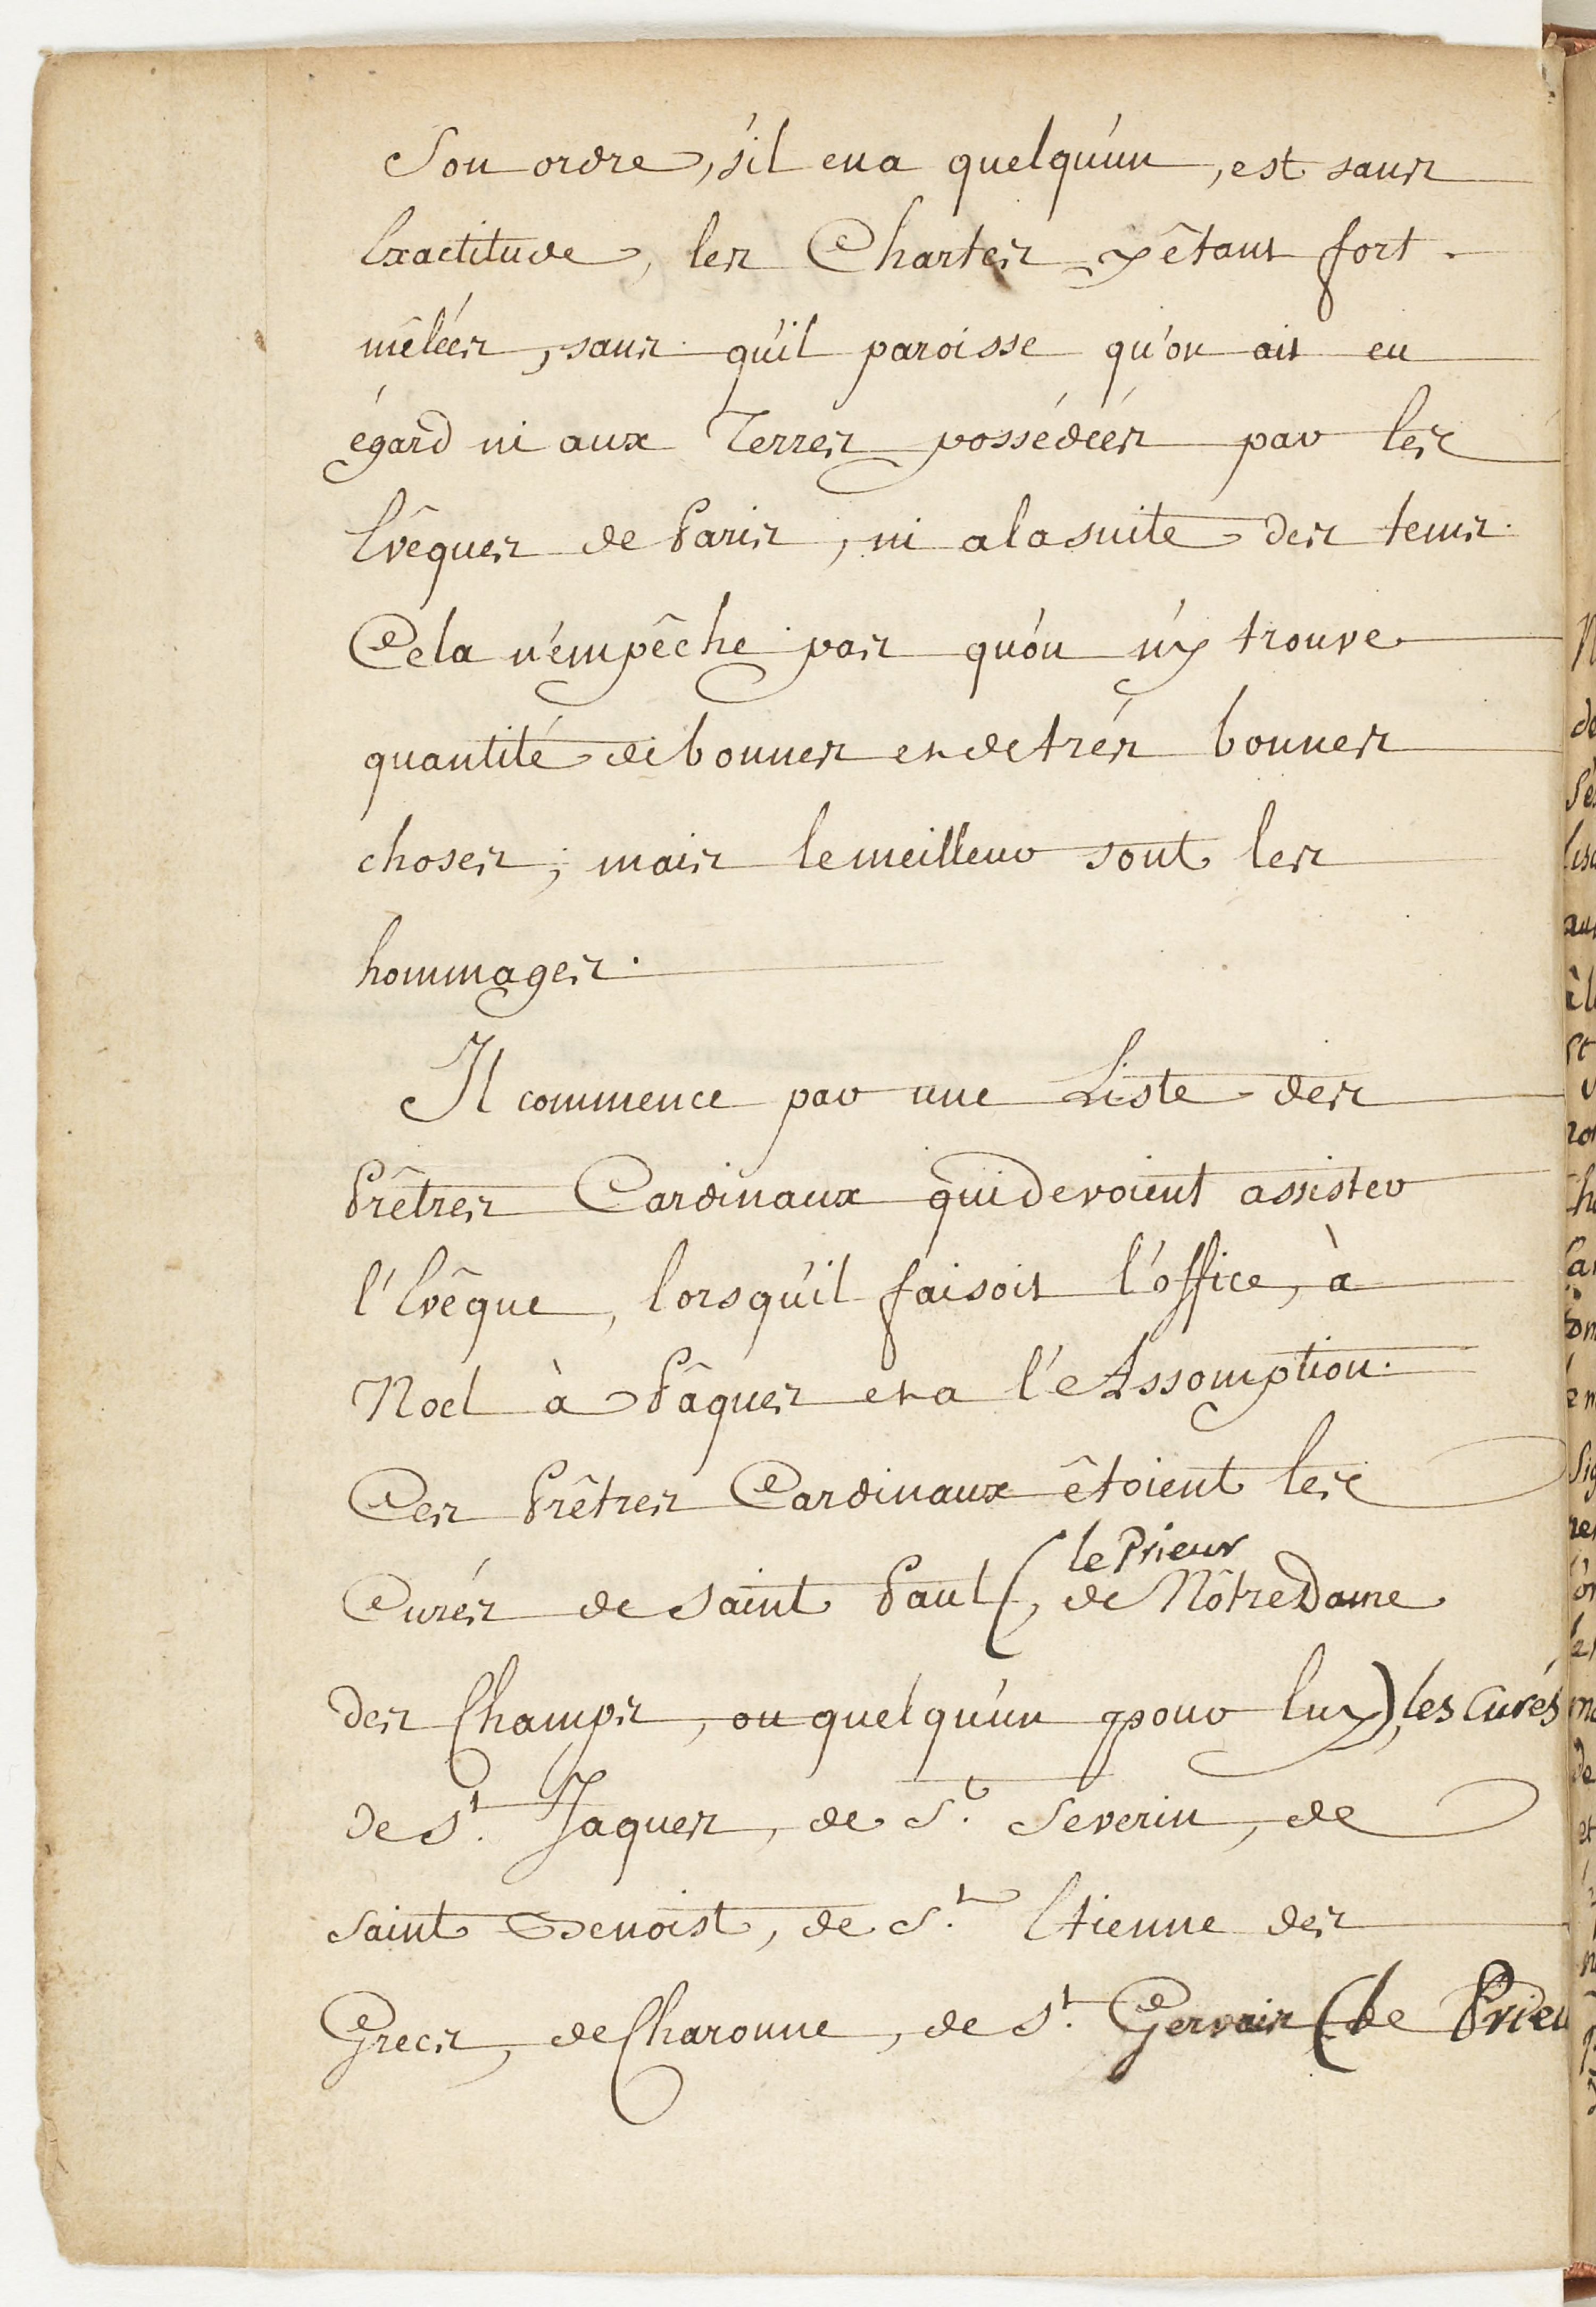 Son ordre, s'il en a quelqu'un, est sans
Exactitude, les Chartes y êtant fort
mêlées, sans qu'il paroisse qu'on ait eu
égard ni aux Terres possédées par les
Evêques de Paris, ni a la suite des tems.
Cela n'empêche pas qu'on n'y trouve
quantité de bonnes et de trés bonnes
choses; mais le meilleur sont les
hommages.
Il commence par une Liste des
Prêtres Cardinaux qui devoient assister
l'Evêque, lorsqu'il faisoit l'office, à
Noel à Pâques et a l'Assomption.
Ces Prêtres Cardinaux êtoient les
le Prieur
Curés de Saint Paul (, de Nôtre Dame
des Champs, ou quelqu'un pour luy), les Curés
de St. Jaques, de St. Severin, de
Saint Benoist, de St. Etienne des
Grecs, de Charonne, de St. Gervais (le Prieu